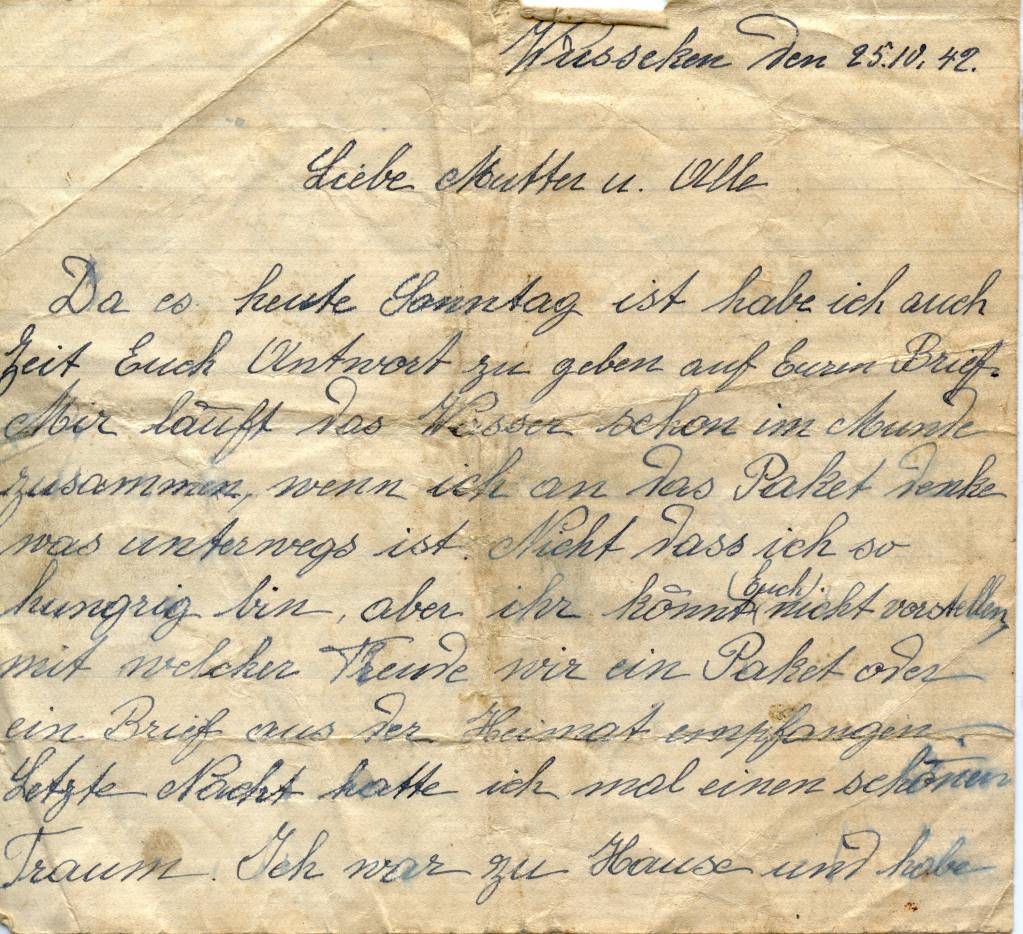 Wusseken den 25.10.42.
Liebe Mutter u. Alle
Da es heute Sonntag ist habe ich auch
Zeit Euch Antwort zu geben auf Euren Brief.
Mir läuft das Wasser schon im Munde
zusammen, wenn ich an das Paket denke
was unterwegs ist. Nicht dass ich so
hungrig bin, aber ihr könnt (Euch) nicht vorstellen,
mit welcher Freude wir ein Paket oder
ein Brief aus der Heimat empfangen.
Letzte Nacht hatte ich mal einen schönen
Traum. Ich war zu Hause und habe